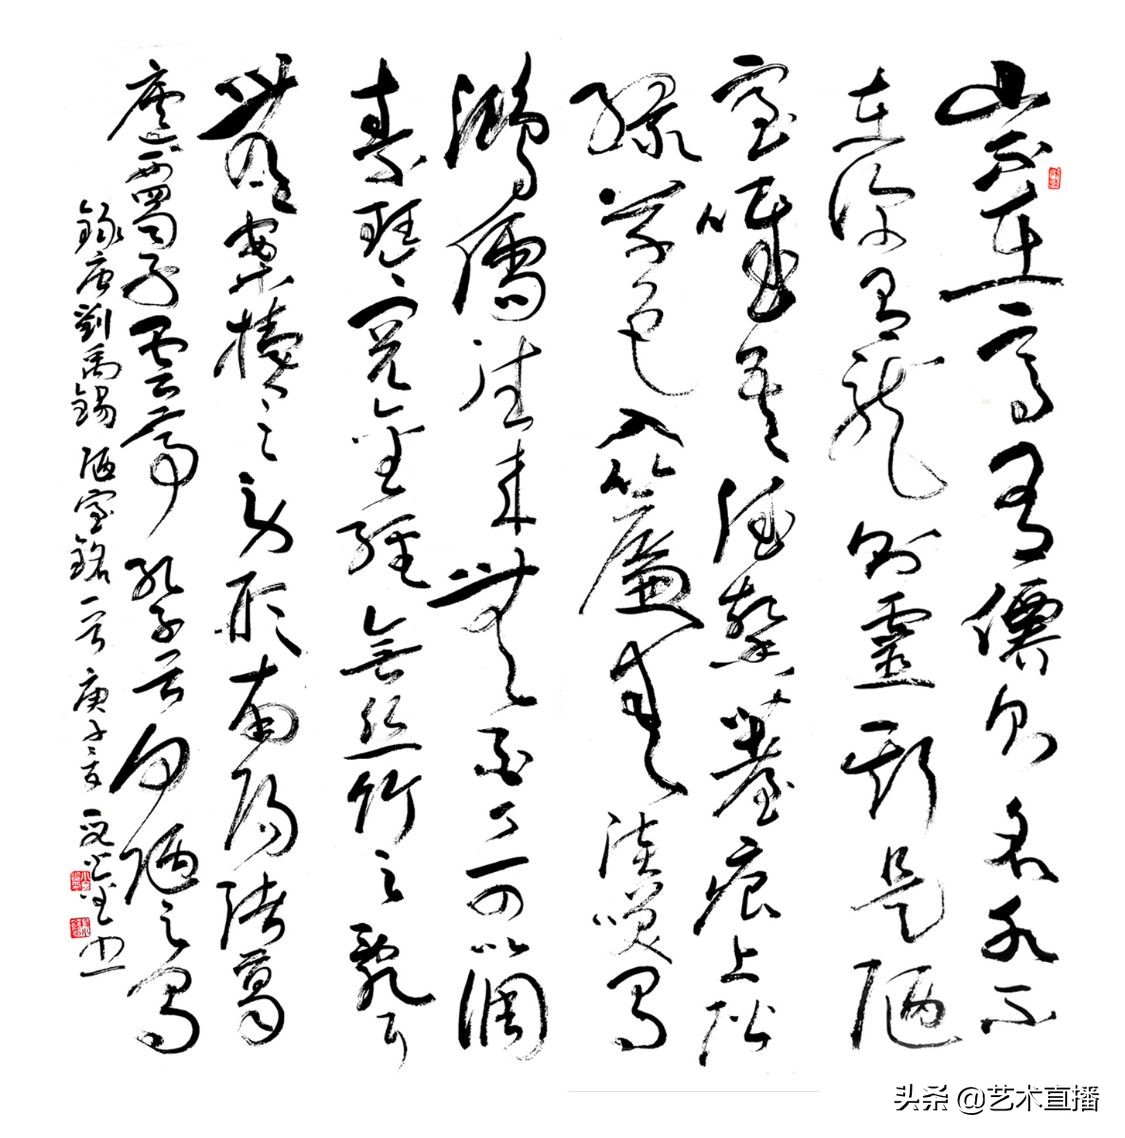 山不在高有僊則名水不
在深有龍則靈斯是陋
室唯吾德馨薹痕上階
綠草色入簾青談笑有
鴻儒往來無白丁可以調
素琴閱金經無絲竹之亂耳
無案牘之勞形南陽諸葛
廬西蜀子雲亭孔子云何陋之有
錄唐劉禹錫陋室銘一首庚子
头条 @艺术直播